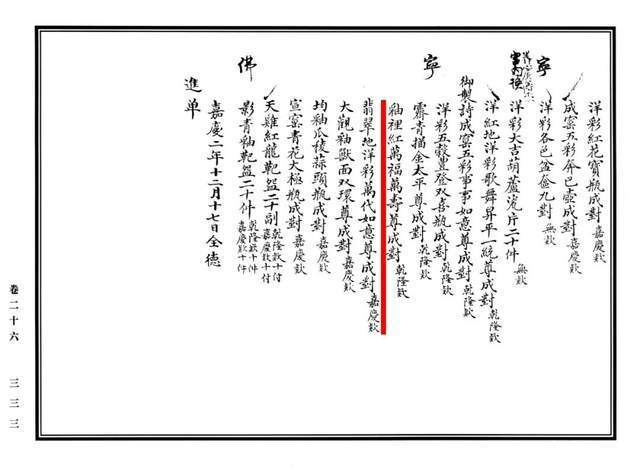 洋彩紅花寶瓶成對 嘉慶款
成窑五彩奔巴壺成對 嘉慶款
寧
洋彩各色盒盛九對 無款
洋彩大吉葫蘆瓷片二十件 無款
洋紅地洋彩歌舞昇平一統尊成對 乾隆款
御製詩成窑五彩事事如意尊成對 乾隆款
洋彩五穀豐登双喜瓶成對 乾隆款
寧
霽青描金太平尊成對 乾隆款
釉裡紅萬福萬壽尊成對 乾隆款
翡翠地洋彩萬代如意尊成對 嘉慶款
大觀釉獸面双環尊成對 嘉慶款
均釉瓜棱蒜頭瓶成對 嘉慶款
宣窑青花太極瓶成對 嘉慶款
天雞紅龍靶盌二十副 乾隆款十付 嘉慶款十付
佛
影青釉靶盌二十件 乾隆款十件 嘉慶款十件
嘉慶二年十二月十七日全德
進单
卷二十六
三三三